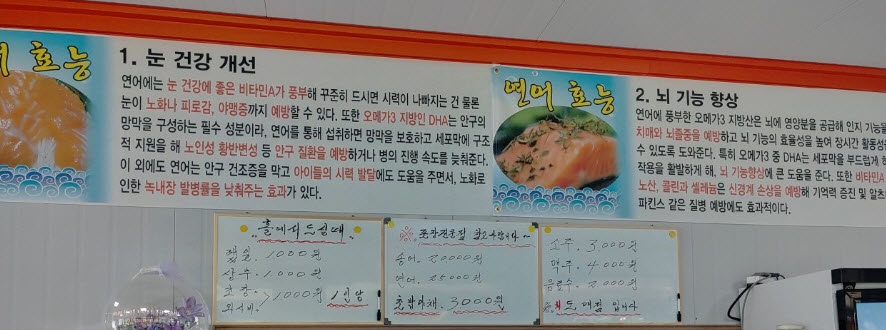 어 효능
1. 눈 건강 개선
연어에는 눈 건강에 좋은 비타민A가 풍부해 꾸준히 드시면 시력이 나빠지는 건 물론
눈이 노화나 피로감, 야맹증까지 예방할 수 있다. 또한 오메가3 지방인 DHA는 안구의
망막을 구성하는 필수 성분이라, 연어를 통해 섭취하면 망막을 보호하고 세포막에 구조
적 지원을 해 노인성 황반변성 등 안구 질환을 예방하거나 병의 진행 속도를 늦춰준다.
이 외에도 연어는 안구 건조증을 막고 아이들의 시력 발달에도 도움을 주면서, 노화로
인한 녹내장 발병률을 낮춰주는 효과가 있다.
연어 효능
2. 뇌 기능 향상
연어에 풍부한 오메가3 지방산은 뇌에 영양분을 공급해 인지 기능을
치매와 뇌졸중을 예방하고 뇌 기능의 효율성을 높여 장시간 활동성을
수 있도록 도와준다. 특히 오메가3 중 DHA는 세포막을 부드럽게 하
작용을 활발하게 해, 뇌 기능향상에 큰 도움을 준다. 또한 비타민A
노산, 콜린과 셀레늄은 신경계 손상을 예방해 기억력 증진 및 알츠
파킨스 같은 질병 예방에도 효과적이다.
홀에서 드실때
1000원
상추. 1000원
초장
와사비 > 1000원 1인당
포장전문점
송어. 20000원
연어. 25000원
초밥야채. 3000원
소주. 3000원
맥주. 4000원
음료수. 2,000원
도매점 입니다